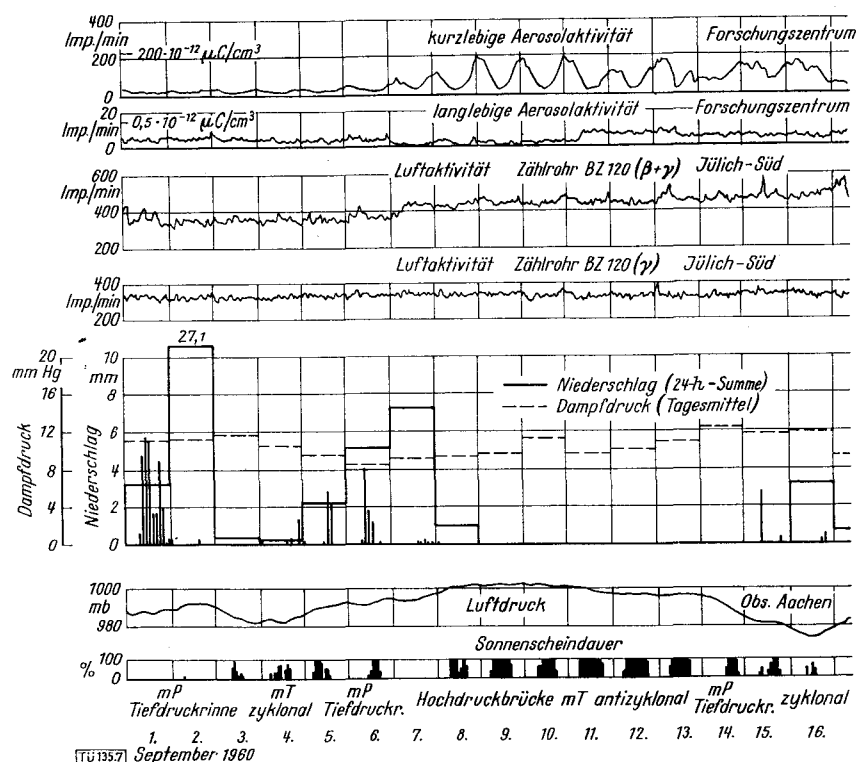 400
Imp./min
200
0
200·10⁻¹² μC/cm³
kurzlebige Aerosolaktivität Forschungszentrum
20
Imp./min
0
0,5·10⁻¹² μC/cm³
langlebige Aerosolaktivität Forschungszentrum
600
Imp./min
400
200
Luftaktivität Zählrohr BZ 120 (β+γ) Jülich-Süd
Luftaktivität Zählrohr BZ 120 (γ) Jülich-Süd
400
Imp./min
200
27,1
20
mm Hg
16
12
8
4
0
Dampfdruck
10
mm
8
6
4
2
0
Niederschlag
Niederschlag (24-h-Summe)
Dampfdruck (Tagesmittel)
1000
mb
980
Luftdruck Obs. Aachen
Sonnenscheindauer
% 100
0
mP mT mP Hochdruckbrücke mT antizyklonal mP zyklonal
Tiefdruckrinne zyklonal Tiefdruckr. Tiefdruckr.
1. 2. 3. 4. 5. 6. 7. 8. 9. 10. 11. 12. 13. 14. 15. 16.
TÜ 135.7 September 1960